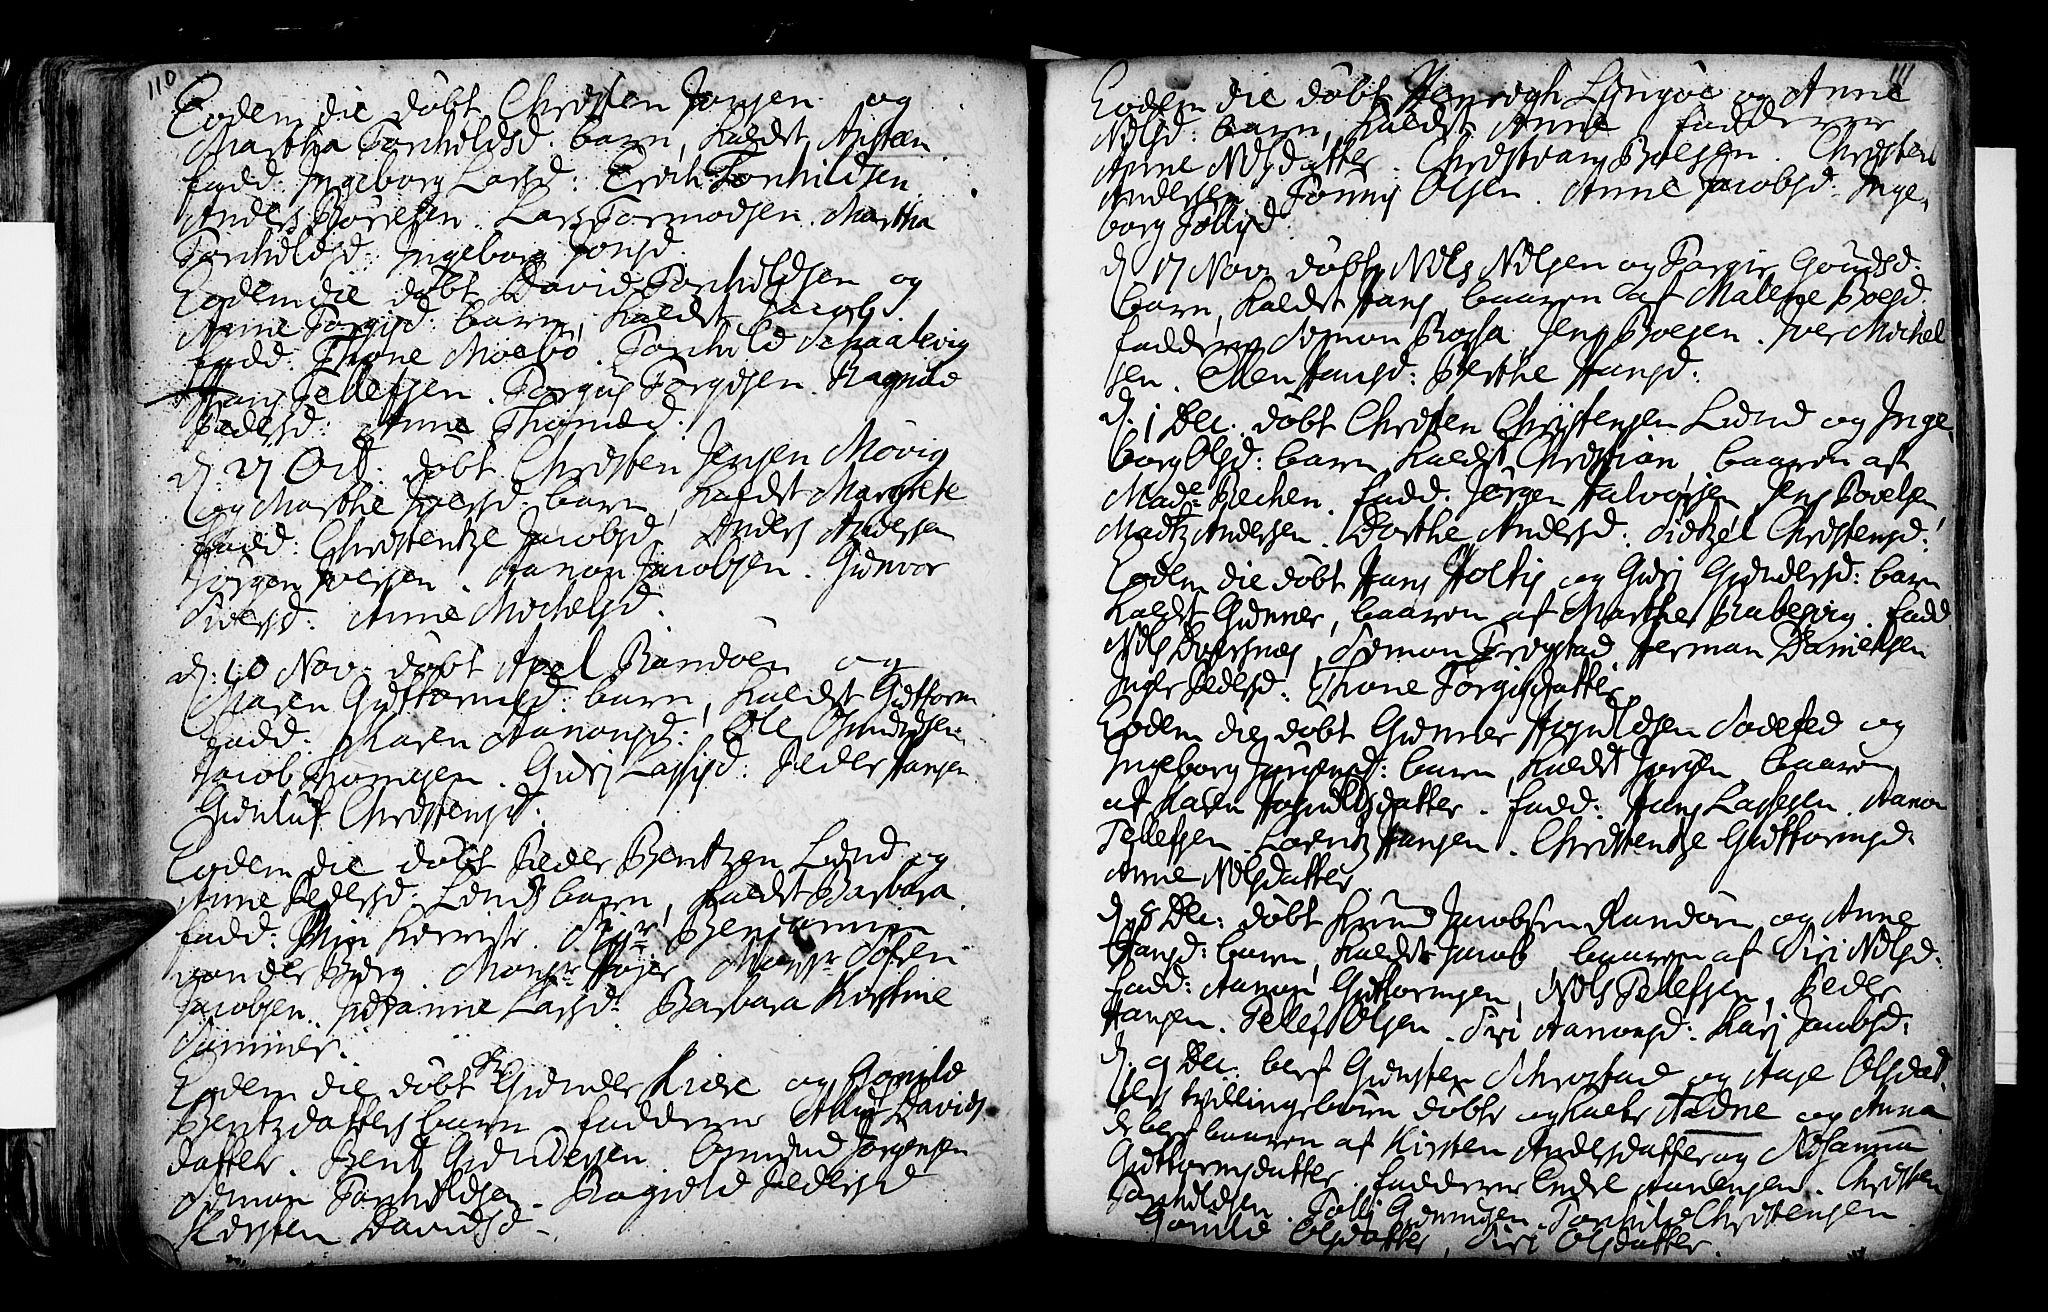 110
Eodem die døbt Christen Jonsen og
Martha Torchildsd. barn, kaldet Austen
fadd: Ingeborg Larsd: Erich Torchildsen
Anders Børresen. Lars Tormodsen. Martha
Torchildsd: Ingeborg Jonsd.
Eodem die døbt David Torchildsen og
Anne Torgisd: barn, kaldet Jacob.
fadd: Thone Moebø. Torchild Schaalevig
Hans Tellefsen. Torgius Torgisen. Ragnild
Pedersd: Anne Thomæd:
d. 27 Oct: døbt Christen Jensen Møvig
og Marthe Iversd. barn, kaldet Margrete
fadd: Christentze Jacobsd. Anders Andersen
Jørgen Iversen. Aanon Jacobsen. Gunvor
Siversd: Anne Michelsd.
d. 10 Nov. døbt Axel Randøen og
Maren Guttormsd: barn, kaldet Guttorm
fadd: Karen Aanonsd: Ole Osmundsen
Jacob Thomesen. Guri Lassisd: Peder Hansen
Gunluf Christensd.
Eodem die døbt Peder Bentzen Lund og
Anne Pedersd: Lunds barn, kaldet Barbara.
fadd: Benjamin
von der Burg Monsr Højer Monsr Søfren
Jacobsen. Susanne Larsd: Barbara Kirstine
Sommer.
Eodem die døbt Gunder Kiere og Gonild
Bentzdatters barn fadderne Davids
datter. Bent Gundersen. Omund Jørgensen
Simon Torchildsen. Ragnild Pedersd
Kirsten Davidsd.
111
Eodem die døbt Henrich Lungøe og Anne
Nilsd: barn, kaldet Anne fadderne
Anne Nilsdatter. Christian Boesen. Christen
Andersen. Tønnis Olsen. Anne Jacobsd: Inge-
borg Tollisd.
d. 17 Nov. døbt Nils Nilsen og Torgir Goudsd:
barn, kaldet Hans baaren af Malene Boesd.
fadderne Simon Rossa Jens Boesen. Iver Michel
sen. Ellen Hansd: Berthe Hansd:
d. 1 Dec. døbt Christen Christensen Lund og Inge-
borg Olsd: barn kaldet Christian, baaren af
Made Bechen. fadd. Jørgen Halvorsen Jens Povelsen
Madtz Andersen. Dorthe Andersd: Sidtzel Christensd:
Eodem die døbt Hans Holtis og Guri Gundersd: barn
kaldet Gunner, baaren af Marthe Rabevig. fadd
Nils Simon Frøystad Herman Danielsen
Inger Pedersd: Thone Torgisdatter
Eodem die døbt Gunner Asguldsen Sodefed og
Ingeborg Jørgensd: barn, kaldet Jørgen, baaren
af Karen Asguldsdatter. fadd: Hans Lassesen. Aanon
Tellefsen. Lorentz Hansen. Christentze Guttormsd.
Anne Nilsdatter.
d. 8 Dec: døbt Knud Jacobsen Randøen og Anne
Hansd: barn, kaldet Jacob baaren af Siri Nilsd:
fadd: Aanon Guttormsen, Nils Tellefsen, Peder
Hansen. Tellef Olsen. Siri Aanonsd: Kari Jacobsd.
d. 9 Dec. bef Gunsten Schrostad og Aase Olsdat-
ters tvillingebørn døbte og kaldet Aadne og Anna
de bef baaren af Kirsten Andersdatter og Johanna
Guttormsdatter. fadderne Endre Aanensen. Christen
Torchildsen. Tolli Gunnusen. Torchild Christensen
Gonild Olsdatter, Siri Olsdatter.